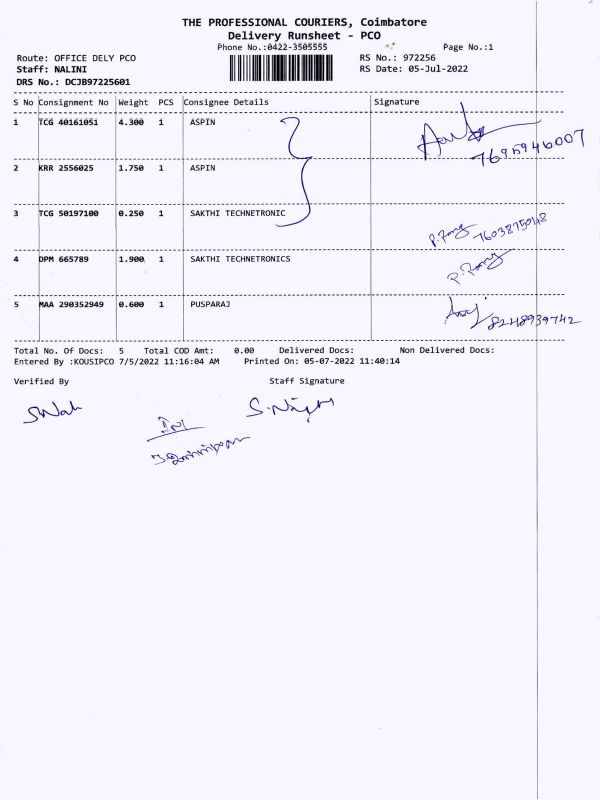 THE PROFESSIONAL COURIERS, Coimbatore
Delivery Runsheet - PCO
Phone No.:0422-3505555 Page No.:1
Route: OFFICE DELY PCO RS No.: 972256
Staff: NALINI RS Date: 05-Jul-2022
DRS No.: DCJB97225601
S No Consignment No Weight PCS Consignee Details Signature
1 TCG 40161051 4.300 1 ASPIN
7695946007
2 KRR 2556025 1.750 1 ASPIN
3 TCG 50197100 0.250 1 SAKTHI TECHNETRONIC
7603875048
4 DPM 665789 1.900 1 SAKTHI TECHNETRONICS
5 MAA 290352949 0.600 1 PUSPARAJ
8248939742
Total No. Of Docs: 5 Total COD Amt: 0.00 Delivered Docs: Non Delivered Docs:
Entered By :KOUSIPCO 7/5/2022 11:16:04 AM Printed On: 05-07-2022 11:40:14
Verified By Staff Signature